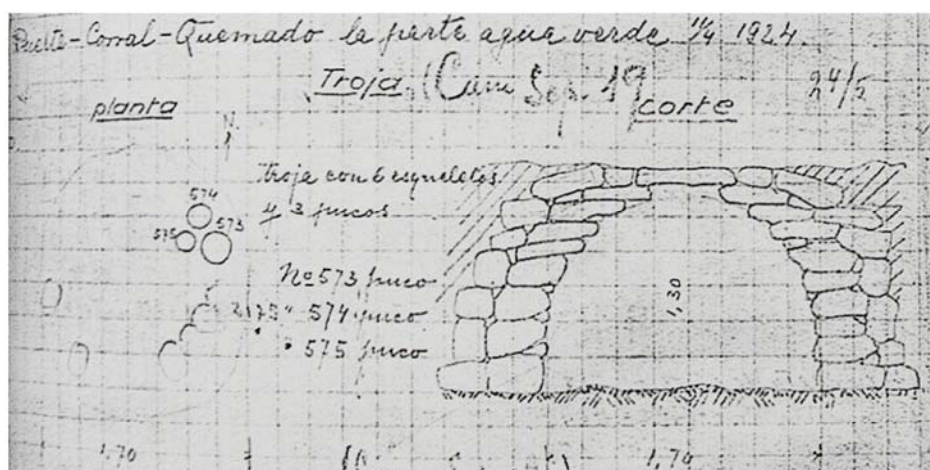 Puerta-Corral-Quemado la parte agua verde 11/4 1924.
Troja (Cum Sep. 19 24/5
planta
corte
N
Troja con 6 esqueletos
y 3 pucos
574
575 573
Nº 573 puco
" 574 puco
" 575 puco
1,30
1,70 1,70